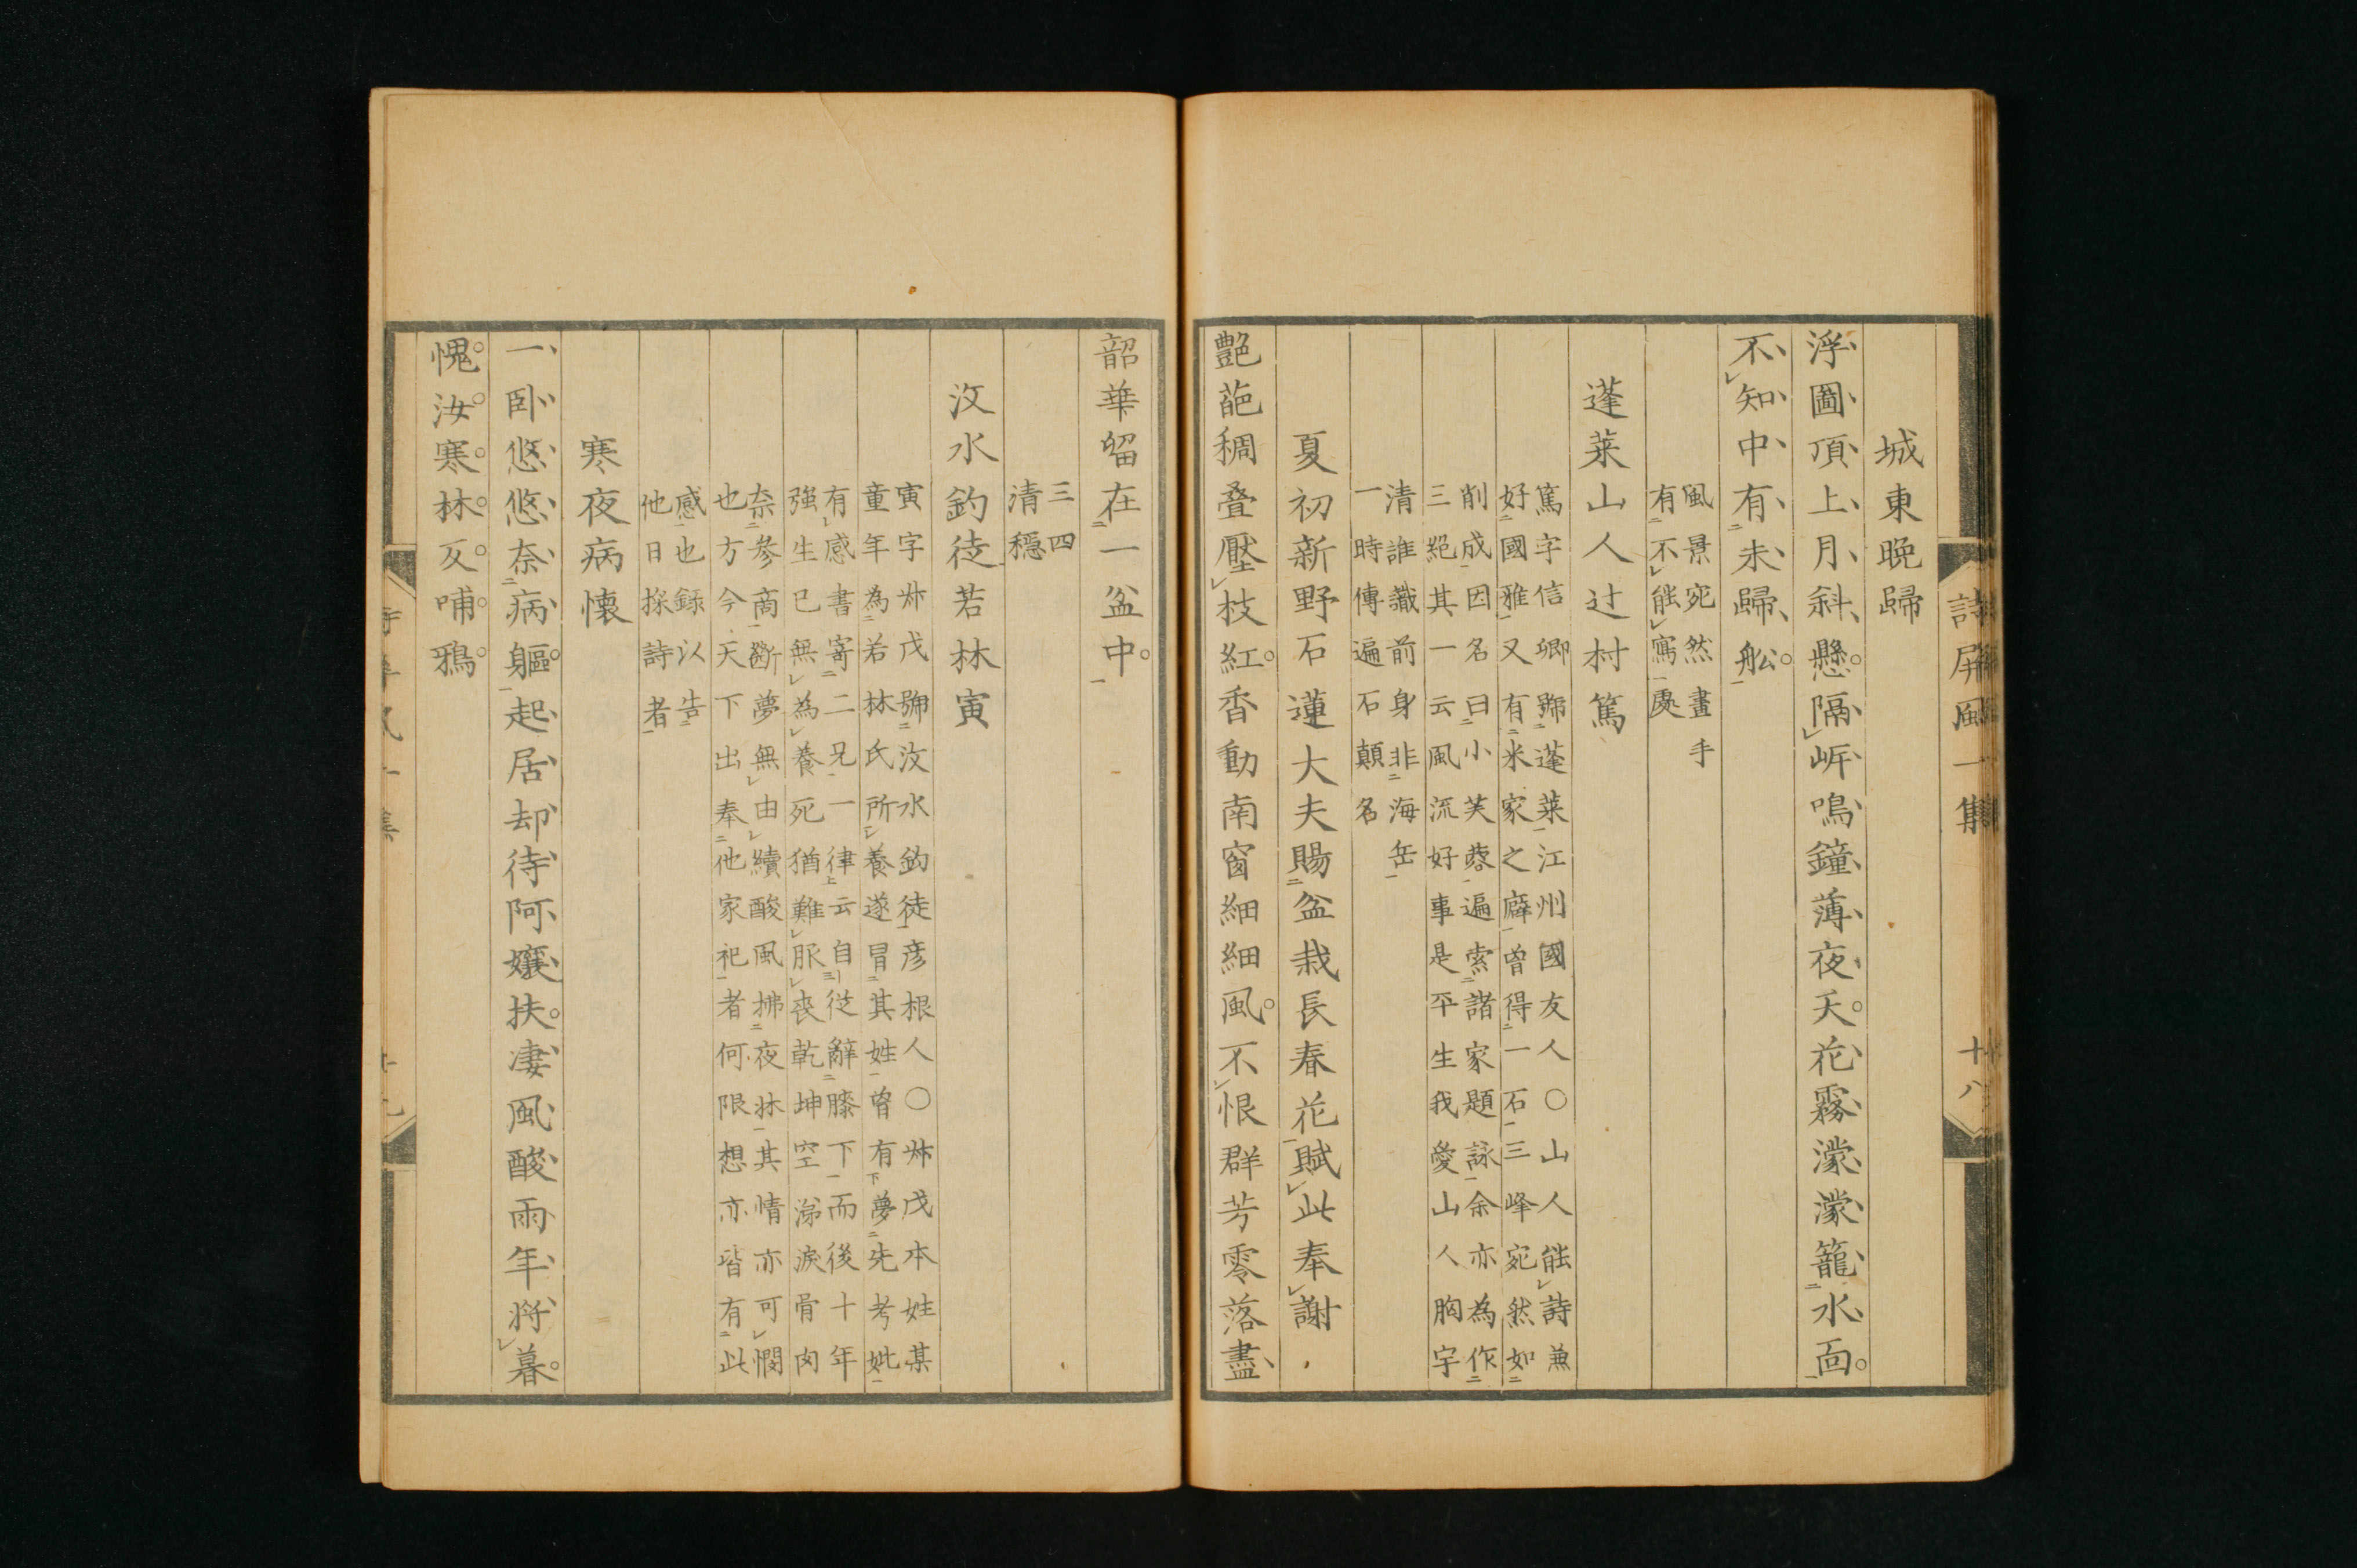 詩屏風一集
十八
城東晚歸
浮圖頂上月斜懸隔岍鳴鐘薄夜天花霧濛濛籠水面
不知中有未歸舩
風景宛然畫手
有不能寫處
蓬萊山人辻村篤
篤字信卿號蓬萊江州國友人〇山人能詩兼
好國雅又有米家之癖曾得一石三峰宛然如
削成因名曰小芙蓉遍索諸家題詠余亦為作
三絕其一云風流好事是平生我愛山人胸宇
清誰識前身非海岳
一時傳遍石顛名
夏初新野石蓮大夫賜盆栽長春花賦此奉謝
艷葩稠疊壓枝紅香動南窗細細風不恨群芳零落盡
韶華留在一盆中
三四
清穩
汶水釣徒若林寅
寅字叔戊號汶水釣徒彥根人〇叔戊本姓某
童年為若林氏所養遂冒其姓曾有夢先考妣
有感書寄二兄一律云自從辭膝下而後十年
強生已無為養死猶難服喪乾坤空涕淚骨肉
奈參商斷夢無由續酸風拂夜牀其情亦可憫
也方今天下出奉他家祀者何限想亦皆有此
感也錄以告
他日採詩者
寒夜病懷
一臥悠悠奈病軀起居却待阿孃扶凄風酸雨年將暮
愧汝寒林反哺鴉